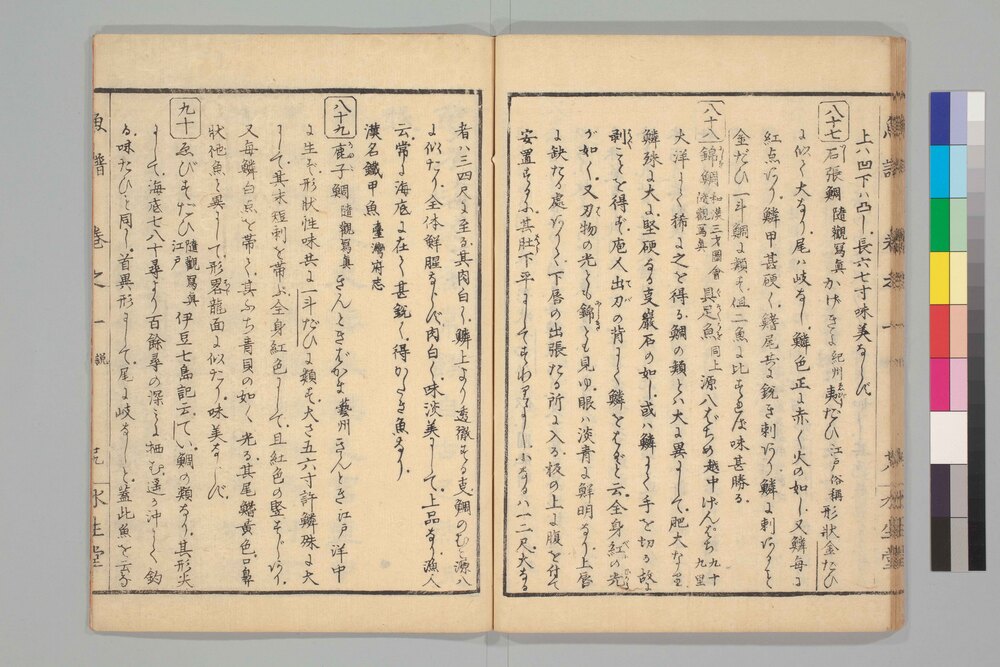 上ハ凹下ハ凸し長六七寸味美ならず
八十七 石張鯛 隨觀寫真 かけきよ 紀州 夷だひ 江戸俗稱 形狀金だひ
に似て大なり尾ハ岐なし鱗色正に赤く火の如し又鱗毎に
紅点あり鱗甲甚硬く鰭尾共に銳き刺あり鱗に刺ありと
金だひ一斗鯛に類す但二魚に比すれバ味甚勝る
八十八 錦鯛 和漢三才圖會 隨觀寫真 具足魚 同上 源八 越中 けんぱち 九十九里
大洋にて稀に之を得る鯛の類とハ大に異にして肥大なり
鱗殊に大に堅硬なる事巖石の如し或ハ鱗にて手を切る故に
剥ことを得ず庖人出刃の背にて鱗をはぐと云全身紅の光
が如く又刃物の光とも錦とも見ゆ眼ハ淡青に鮮明なり上唇
に缺たる處ありて下唇の出張たる所に入る板の上に腹を付て
安置するに其肚下平にして小なるハ一二尺大なる
者ハ三四尺に至る其肉白く鱗上より透徹する事鯛のむし源八
に似たり全体鮮腥ならず肉白く味淡美にして上品なり漁人
云常に海底に在て甚銳く得がたき魚なり
漢名鐵甲魚 臺灣府志
八十九 鹿子鯛 隨觀寫真 きんときばかま 藝州 きんとき 江戸 洋中
に生ず形狀性味共に一斗だひに類す大さ五六寸許鱗殊に大
にして其末短刺を帶ぶ全身紅色にして且紅色の竪すじあり
又毎鱗白点を帶て其ふち青貝の如く光る其尾鰭黄色口鼻
狀他魚と異にして形畧龍面に似たり味美ならず
九十 ゑびすだひ 隨觀寫真 江戸 伊豆七島記云てい鯛の類なり其形尖
にして海底七八十尋より百餘尋の深きに栖む遙の沖にて釣
る味たひと同じ首異形にして尾に岐なしと蓋此魚を云なり
魚譜 卷之一 説 水生堂